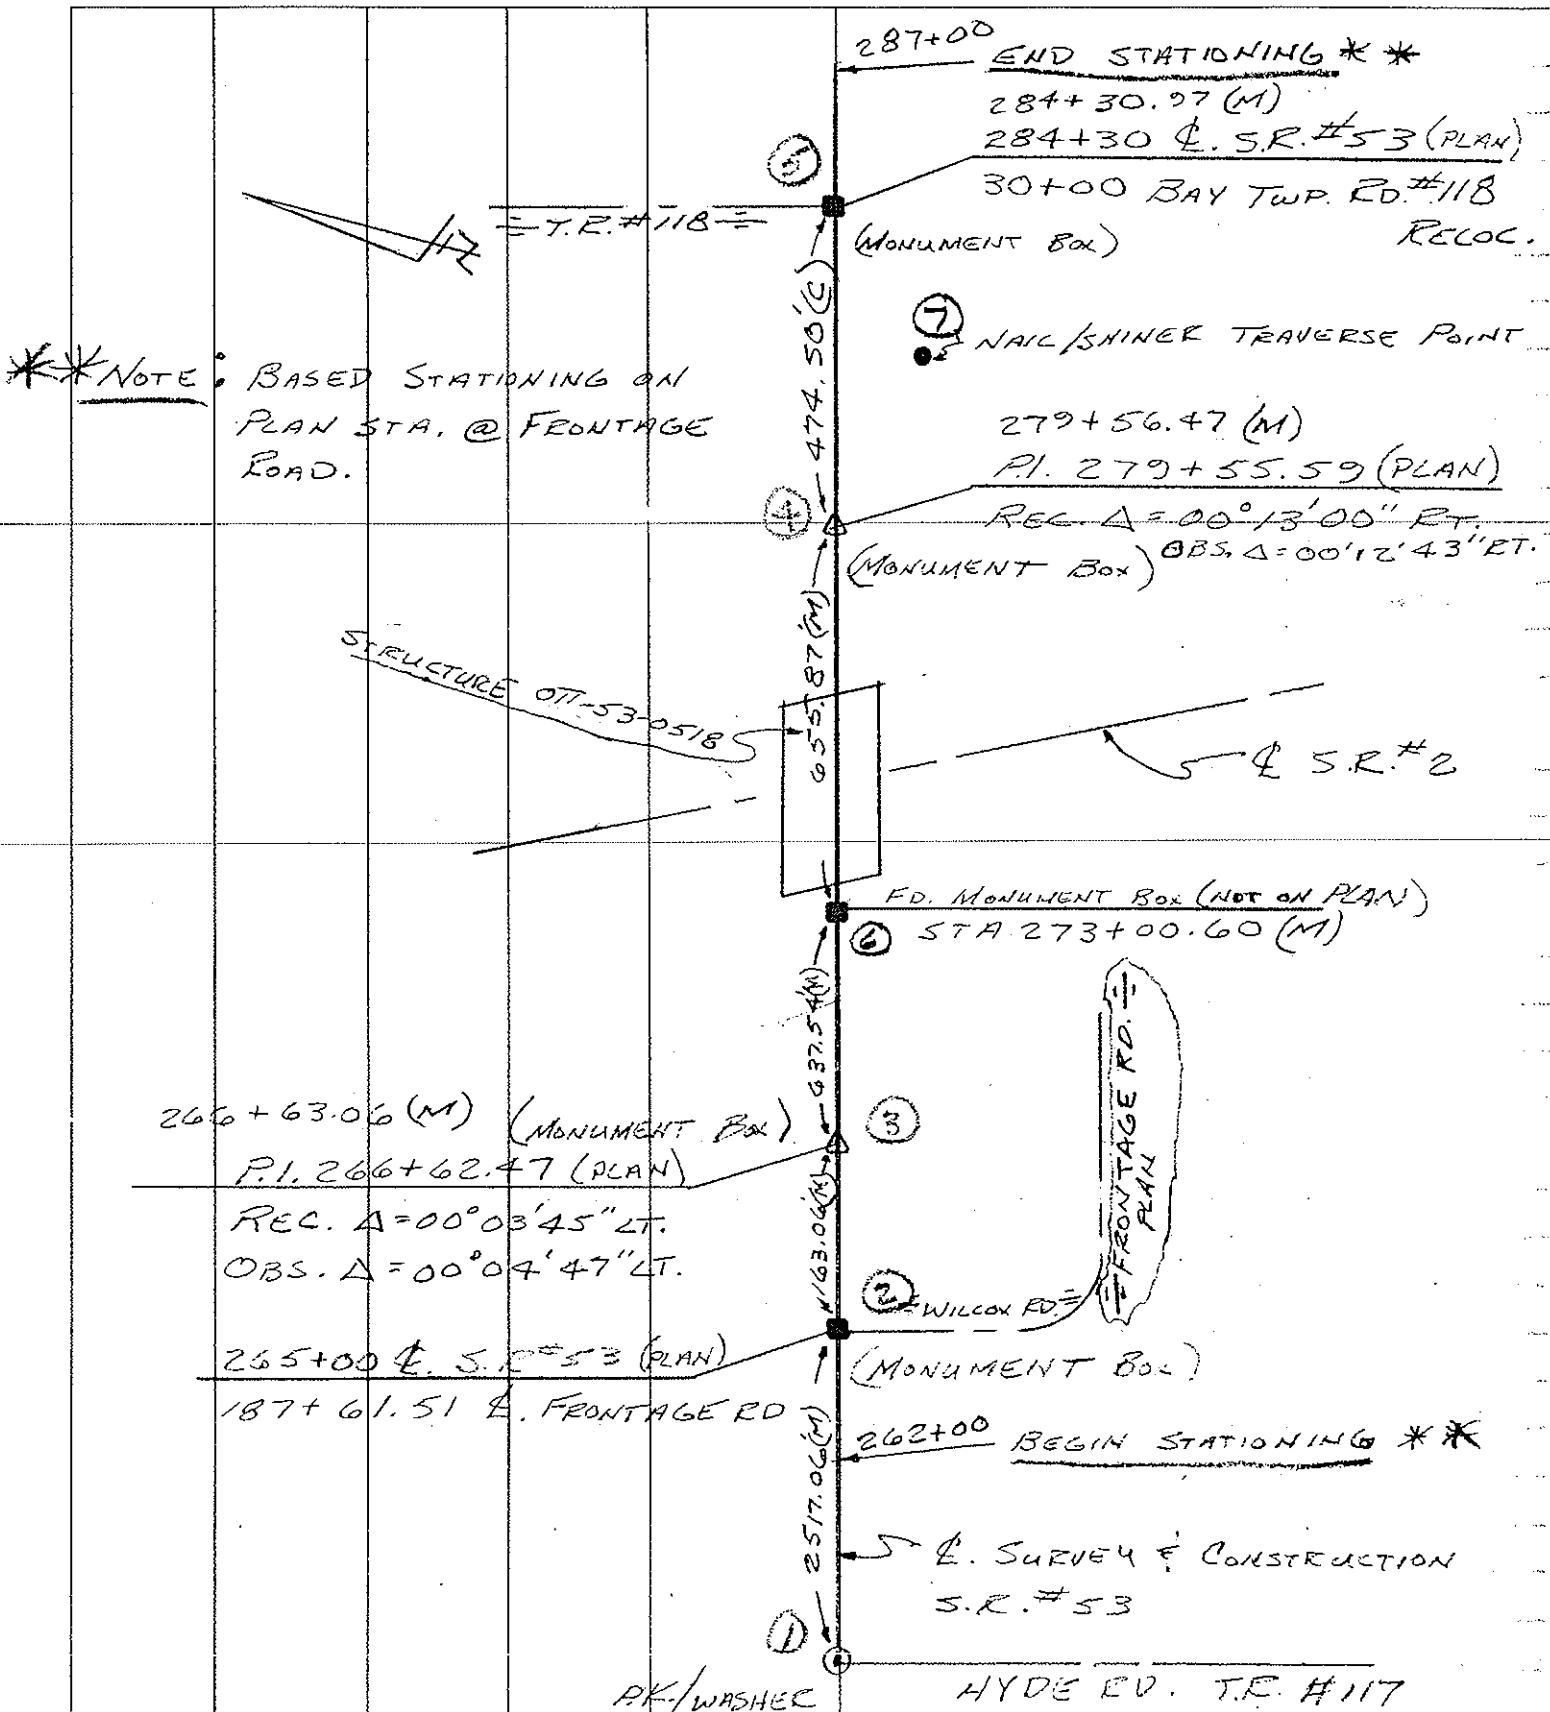 287+00
END STATIONING * *
284+30.97 (M)
284+30 ℄. S.R. #53 (PLAN)
30+00 BAY TWP. RD. #118
RELOC.
5
= T.R. #118 =
(MONUMENT BOX)
474.50'(C)
7
NAIL/SHINER TRAVERSE POINT
** NOTE: BASED STATIONING ON
PLAN STA. @ FRONTAGE
ROAD.
279+56.47 (M)
P.I. 279+55.59 (PLAN)
REC. Δ = 00°13'00" RT.
OBS. Δ = 00'12'43" RT.
4
(MONUMENT BOX)
655.87'(M)
STRUCTURE OTT-53-0518
℄ S.R. #2
FD. MONUMENT BOX (NOT ON PLAN)
6 STA 273+00.60 (M)
637.54'(M)
= FRONTAGE RD. =
PLAN
266+63.06 (M) (MONUMENT BOX)
3
P.I. 266+62.47 (PLAN)
REC. Δ = 00°03'45" LT.
OBS. Δ = 00°04'47" LT.
163.06'(M)
2
= WILCOX RD. =
265+00 ℄. S.R. #53 (PLAN)
(MONUMENT BOX)
187+61.51 ℄. FRONTAGE RD
262+00
BEGIN STATIONING * *
2517.06'(M)
℄. SURVEY & CONSTRUCTION
S.R. #53
1
P.K./WASHER
HYDE RD. T.R. #117